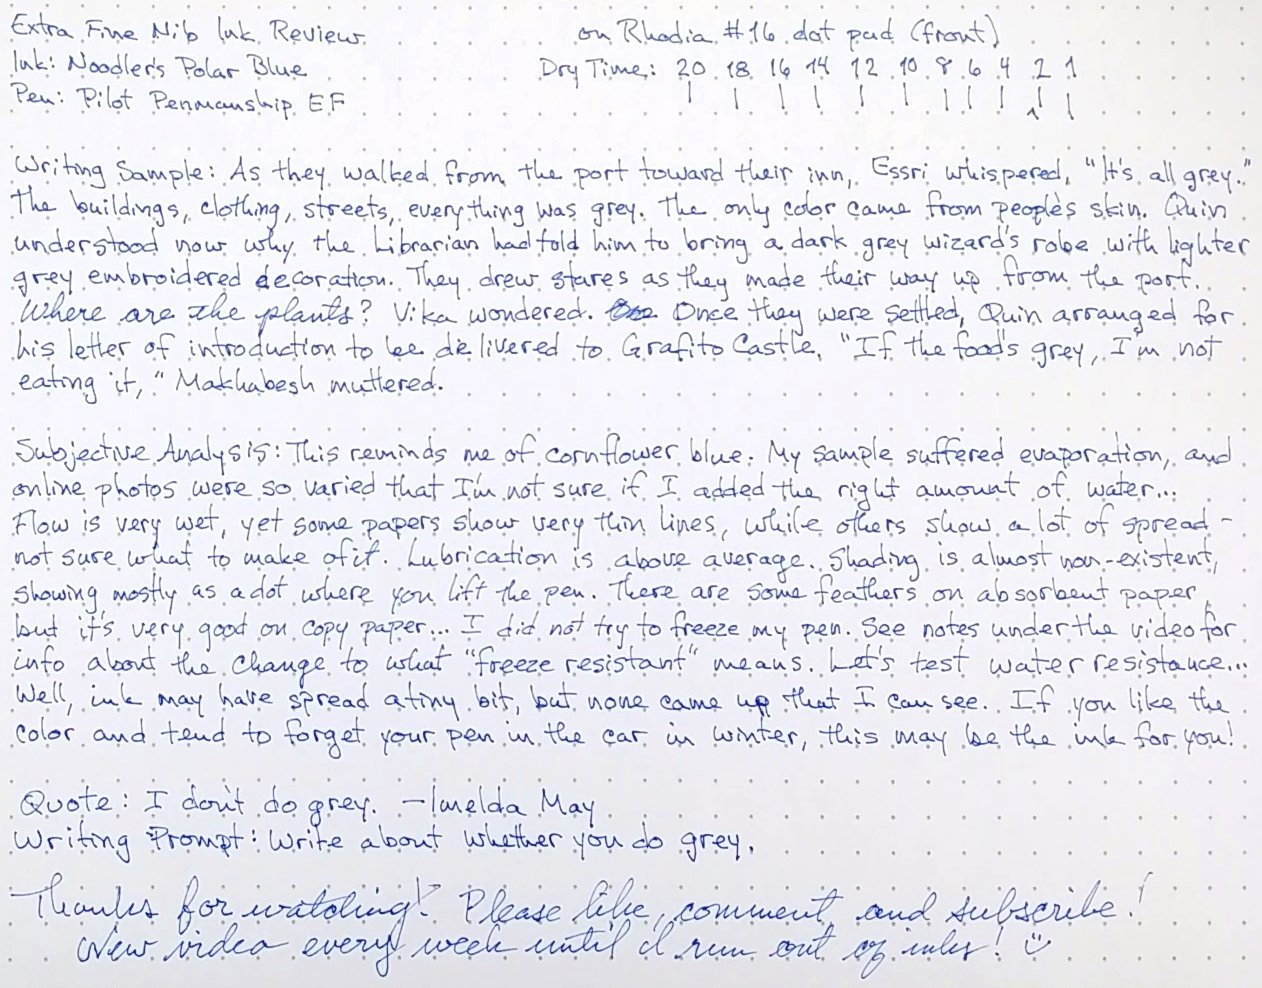 Extra Fine Nib Ink Review on Rhodia #16 dot pad (front)
Ink: Noodler's Polar Blue Dry Time: 20 18 16 14 12 10 8 6 4 2 1
Pen: Pilot Penmanship EF
Writing Sample: As they walked from the port toward their inn, Essri whispered, "It's all grey."
The buildings, clothing, streets, everything was grey. The only color came from people's skin. Quin
understood now why the Librarian had told him to bring a dark grey wizard's robe with lighter
grey embroidered decoration. They drew stares as they made their way up from the port.
Where are the plants? Vika wondered. Once they were settled, Quin arranged for
his letter of introduction to be delivered to Grafito Castle. "If the food's grey, I'm not
eating it," Makhabesh muttered.
Subjective Analysis: This reminds me of cornflower blue. My sample suffered evaporation, and
online photos were so varied that I'm not sure if I added the right amount of water...
Flow is very wet, yet some papers show very thin lines, while others show a lot of spread -
not sure what to make of it. Lubrication is above average. Shading is almost non-existent,
showing mostly as a dot where you lift the pen. There are some feathers on absorbent paper,
but it's very good on copy paper... I did not try to freeze my pen. See notes under the video for
info about the change to what "freeze resistant" means. Let's test water resistance...
Well, ink may have spread a tiny bit, but none came up that I can see. If you like the
color and tend to forget your pen in the car in winter, this may be the ink for you!
Quote: I don't do grey. -Imelda May
Writing Prompt: Write about whether you do grey.
Thanks for watching! Please like, comment, and subscribe!
New video every week until I run out of inks! :)